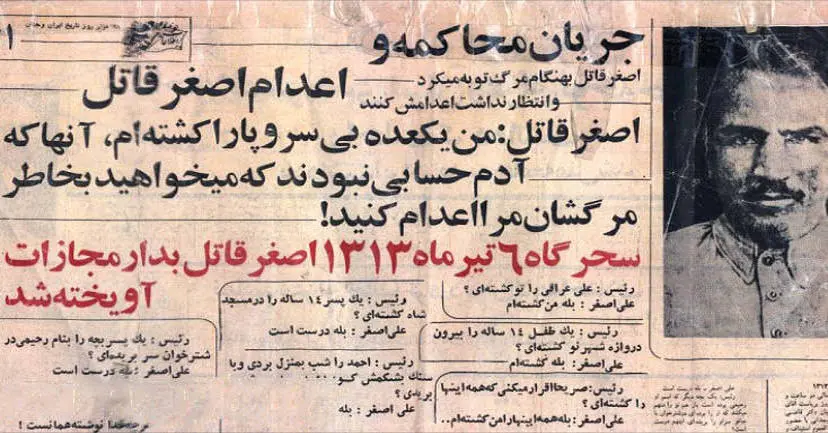 ۲۸ هزار روز تاریخ ایران و جهان
جریان محاکمه و
اصغر قاتل بهنگام مرگ توبه میکرد
و انتظار نداشت اعدامش کنند
اعدام اصغر قاتل
اصغر قاتل: من یکعده بی سر و پا را کشته‌ام، آنها که
آدم حسابی نبودند که میخواهید بخاطر
مرگشان مرا اعدام کنید!
سحرگاه ۶ تیر ماه ۱۳۱۳ اصغر قاتل بدار مجازات
آویخته شد
رئیس: علی عراقی را تو کشته‌ای؟
علی‌اصغر: بله من کشته‌ام
رئیس: یك طفل ۱۴ ساله را بیرون
دروازه شهر نو کشته‌ای؟
علی‌اصغر: بله کشته‌ام
رئیس: صریحا اقرار میکنی که همه اینها
را کشته‌ای؟
علی‌اصغر: بله همه اینها را من کشته‌ام..
رئیس: یك پسر ۱۴ ساله را در مسجد
شاه کشته‌ای؟
علی‌اصغر: بله درست است
رئیس: احمد را شب بمنزل بردی و با
سنك بشکمش
بریدی؟
علی‌اصغر: بله
رئیس: یك پسر بچه را بنام رحیمی در
شترخوان سر بریده‌ای؟
علی‌اصغر: بله درست است
خدا نوشته همانست!
علی اصغر ـ بله درست است